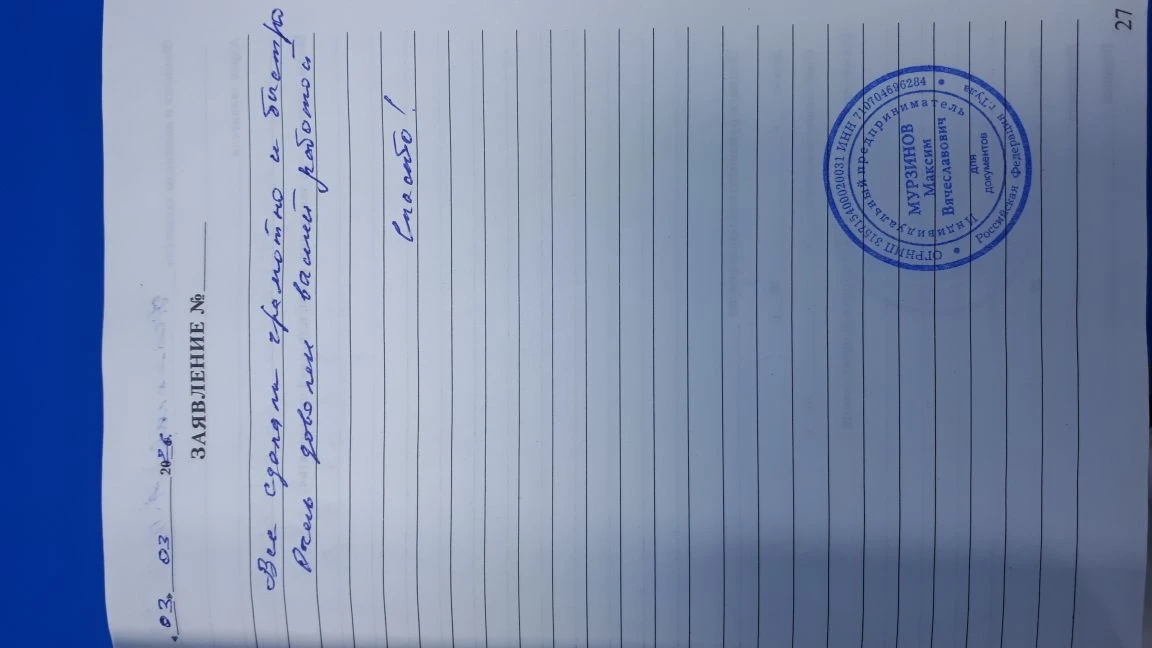 « 03 » 03 20 г.
ЗАЯВЛЕНИЕ №
Все сделали грамотно и быстро
Очень доволен вашей работой
Спасибо!
ОГРНИП 315715400020031 ИНН 710704696284
Индивидуальный предприниматель
МУРЗИНОВ
Максим
Вячеславович
для
документов
Российская Федерация г.Тула
27